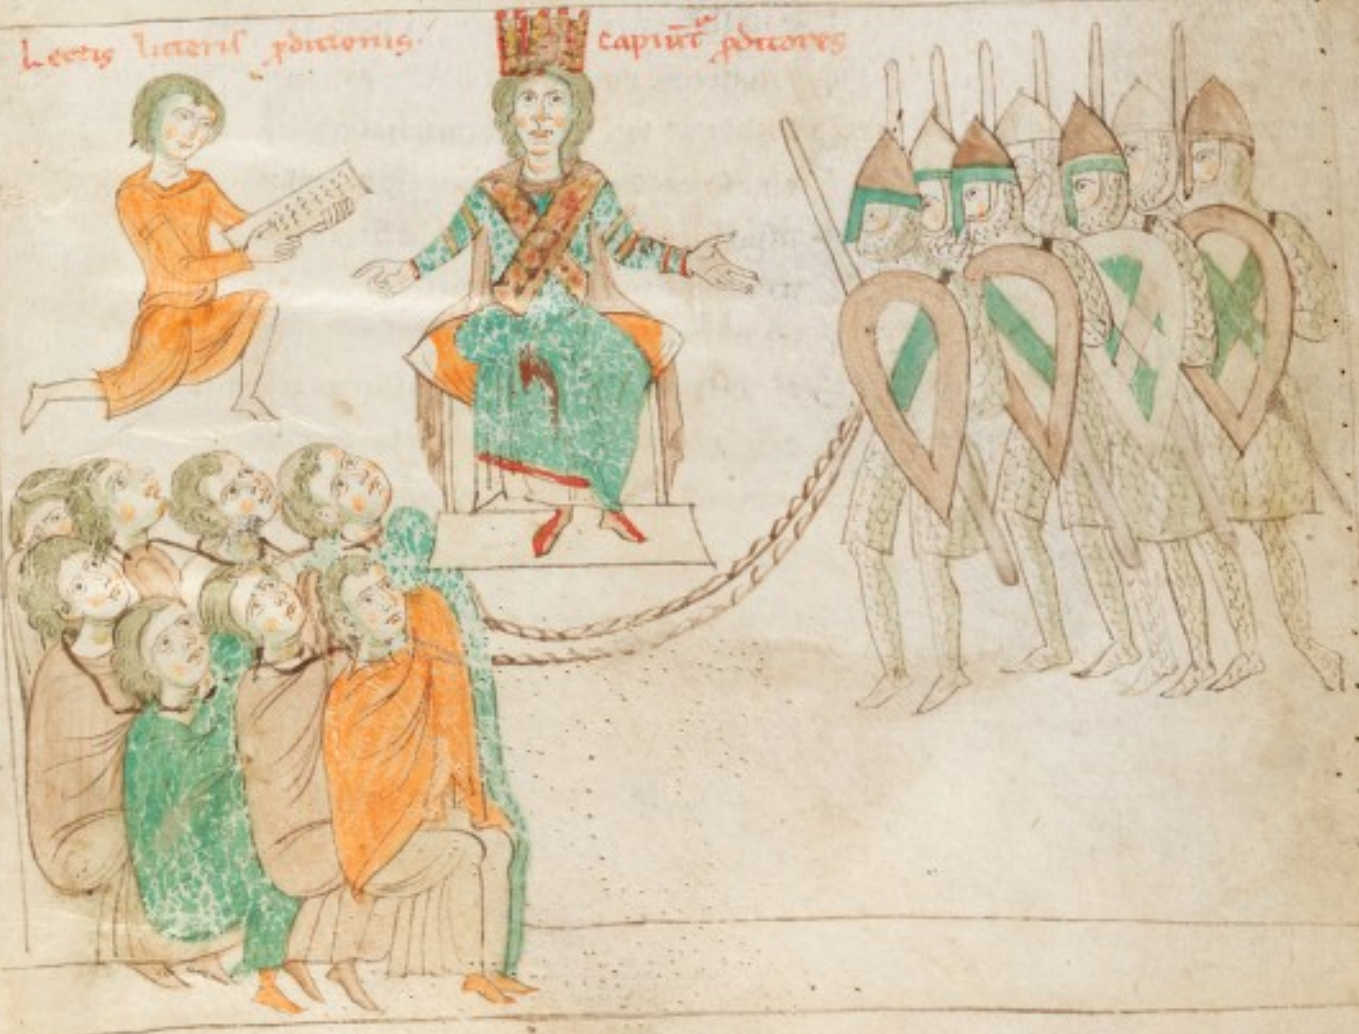 Lectis litteris ꝓditionis. capiūt᷑ ꝓditores